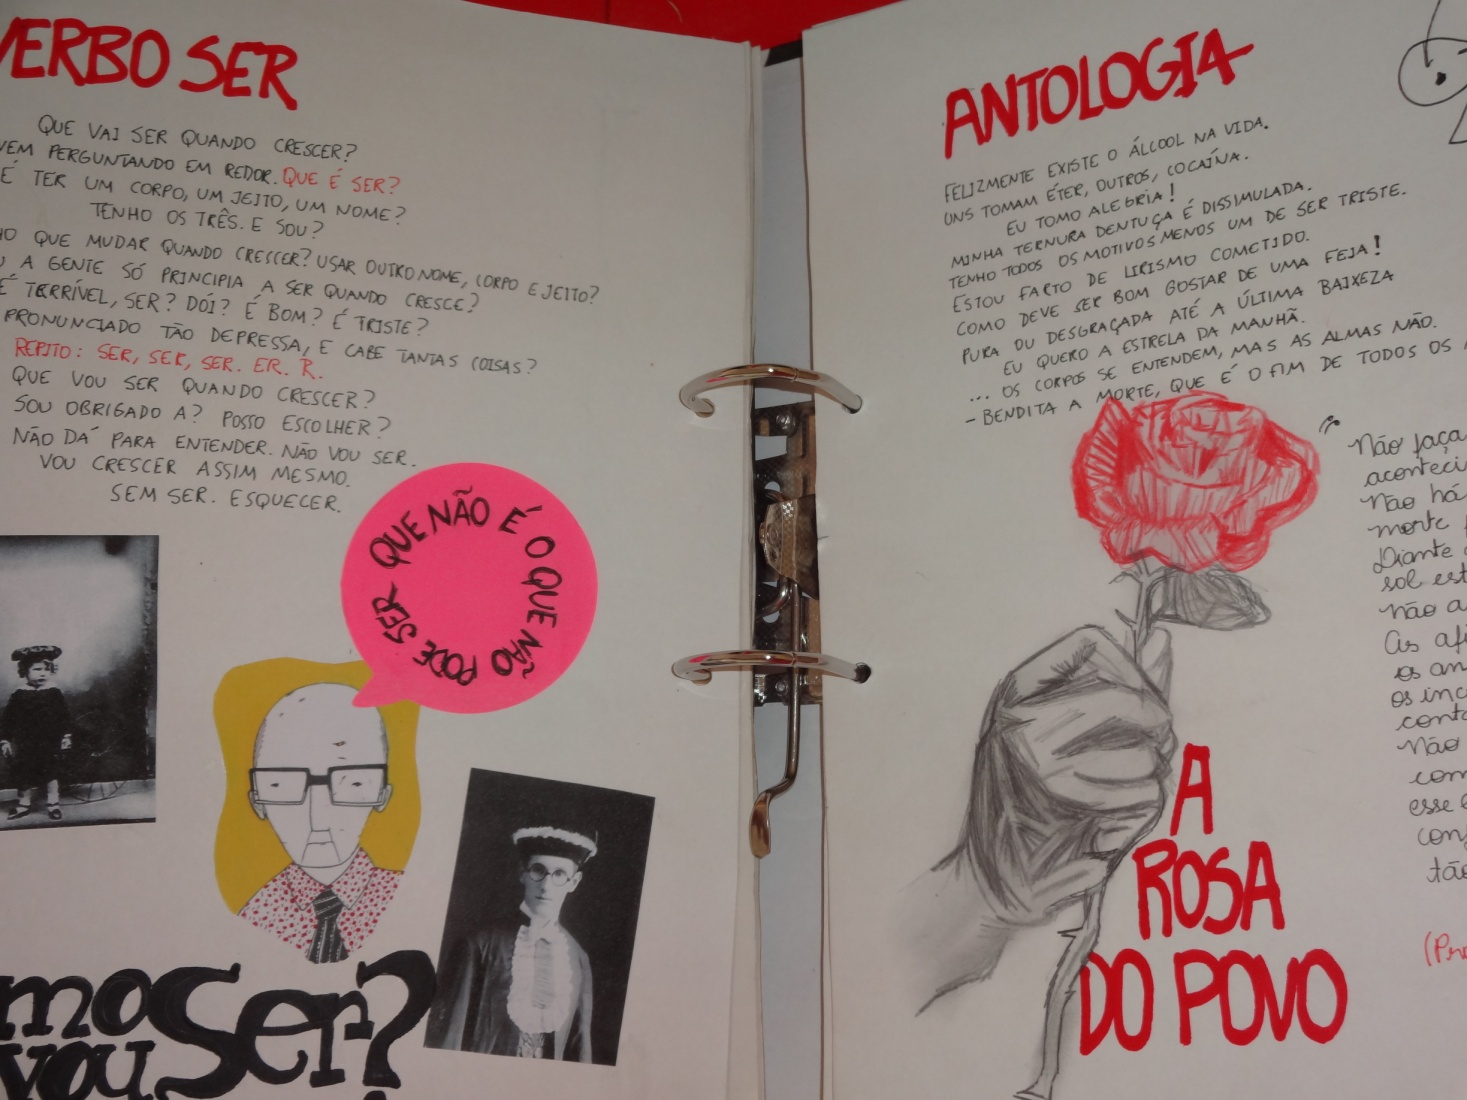 VERBO SER
QUE VAI SER QUANDO CRESCER?
VEM PERGUNTANDO EM REDOR. QUE É SER?
É TER UM CORPO, UM JEITO, UM NOME?
TENHO OS TRÊS. E SOU?
QUE MUDAR QUANDO CRESCER? USAR OUTRO NOME, CORPO E JEITO?
A GENTE SÓ PRINCIPIA A SER QUANDO CRESCE?
É TERRÍVEL, SER? DÓI? É BOM? É TRISTE?
PRONUNCIADO TÃO DEPRESSA, E CABE TANTAS COISAS?
REPITO: SER, SER, SER. ER. R.
QUE VOU SER QUANDO CRESCER?
SOU OBRIGADO A? POSSO ESCOLHER?
NÃO DÁ PARA ENTENDER. NÃO VOU SER.
VOU CRESCER ASSIM MESMO.
SEM SER. ESQUECER.
QUE NÃO É O QUE NÃO PODE SER
SER?
VOU
ANTOLOGIA
FELIZMENTE EXISTE O ÁLCOOL NA VIDA.
UNS TOMAM ÉTER, OUTROS, COCAÍNA.
EU TOMO ALEGRIA!
MINHA TERNURA DENTUÇA É DISSIMULADA.
TENHO TODOS OS MOTIVOS MENOS UM DE SER TRISTE.
ESTOU FARTO DE LIRISMO COMETIDO.
COMO DEVE SER BOM GOSTAR DE UMA FEJA!
PURA OU DESGRAÇADA ATÉ A ÚLTIMA BAIXEZA
EU QUERO A ESTRELA DA MANHÃ.
... OS CORPOS SE ENTENDEM, MAS AS ALMAS NÃO.
- BENDITA A MORTE, QUE É O FIM DE TODOS OS
Não faça
Não há
morte
Diante
sol
não
As
os
os
Não
esse
A
ROSA
DO POVO